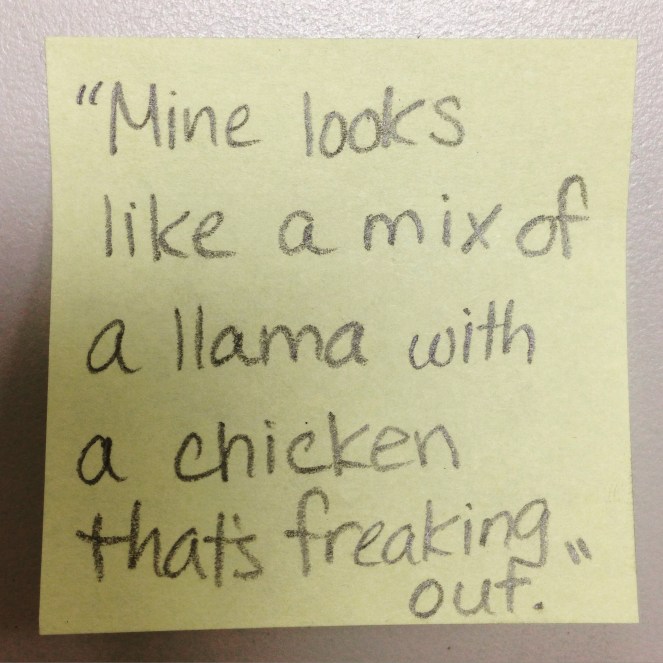 "Mine looks
like a mix of
a llama with
a chicken
that's freaking
out."